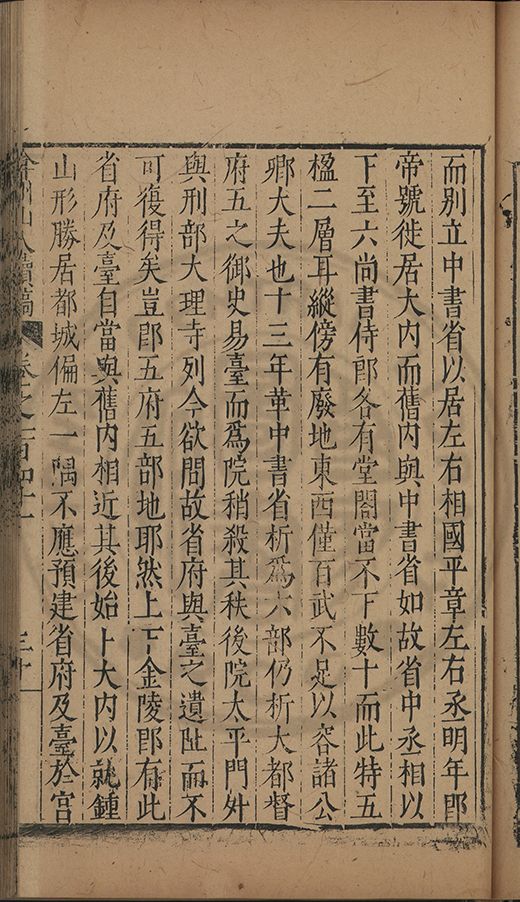 而别立中書省以居左右相國平章左右丞明年即
帝號徙居大内而舊内與中書省如故省中丞相以
下至六尚書侍郎各有堂閣當不下數十而此特五
楹二層耳縱傍有廢地東西僅百武不足以容諸公
卿大夫也十三年革中書省析爲六部仍析大都督
府五之御史易臺而爲院稍殺其秩後院太平門外
與刑部大理寺列今欲問故省府與臺之遺趾而不
可復得矣豈即五府五部地耶然上下金陵即有此
省府及臺自當與舊内相近其後始卜大内以就鍾
山形勝居都城偏左一隅不應預建省府及臺於宫
山人續稿 卷之一百四十一 三十一